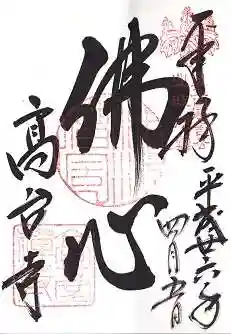 奉拝
平成廿六年
四月五日
佛心
高台寺